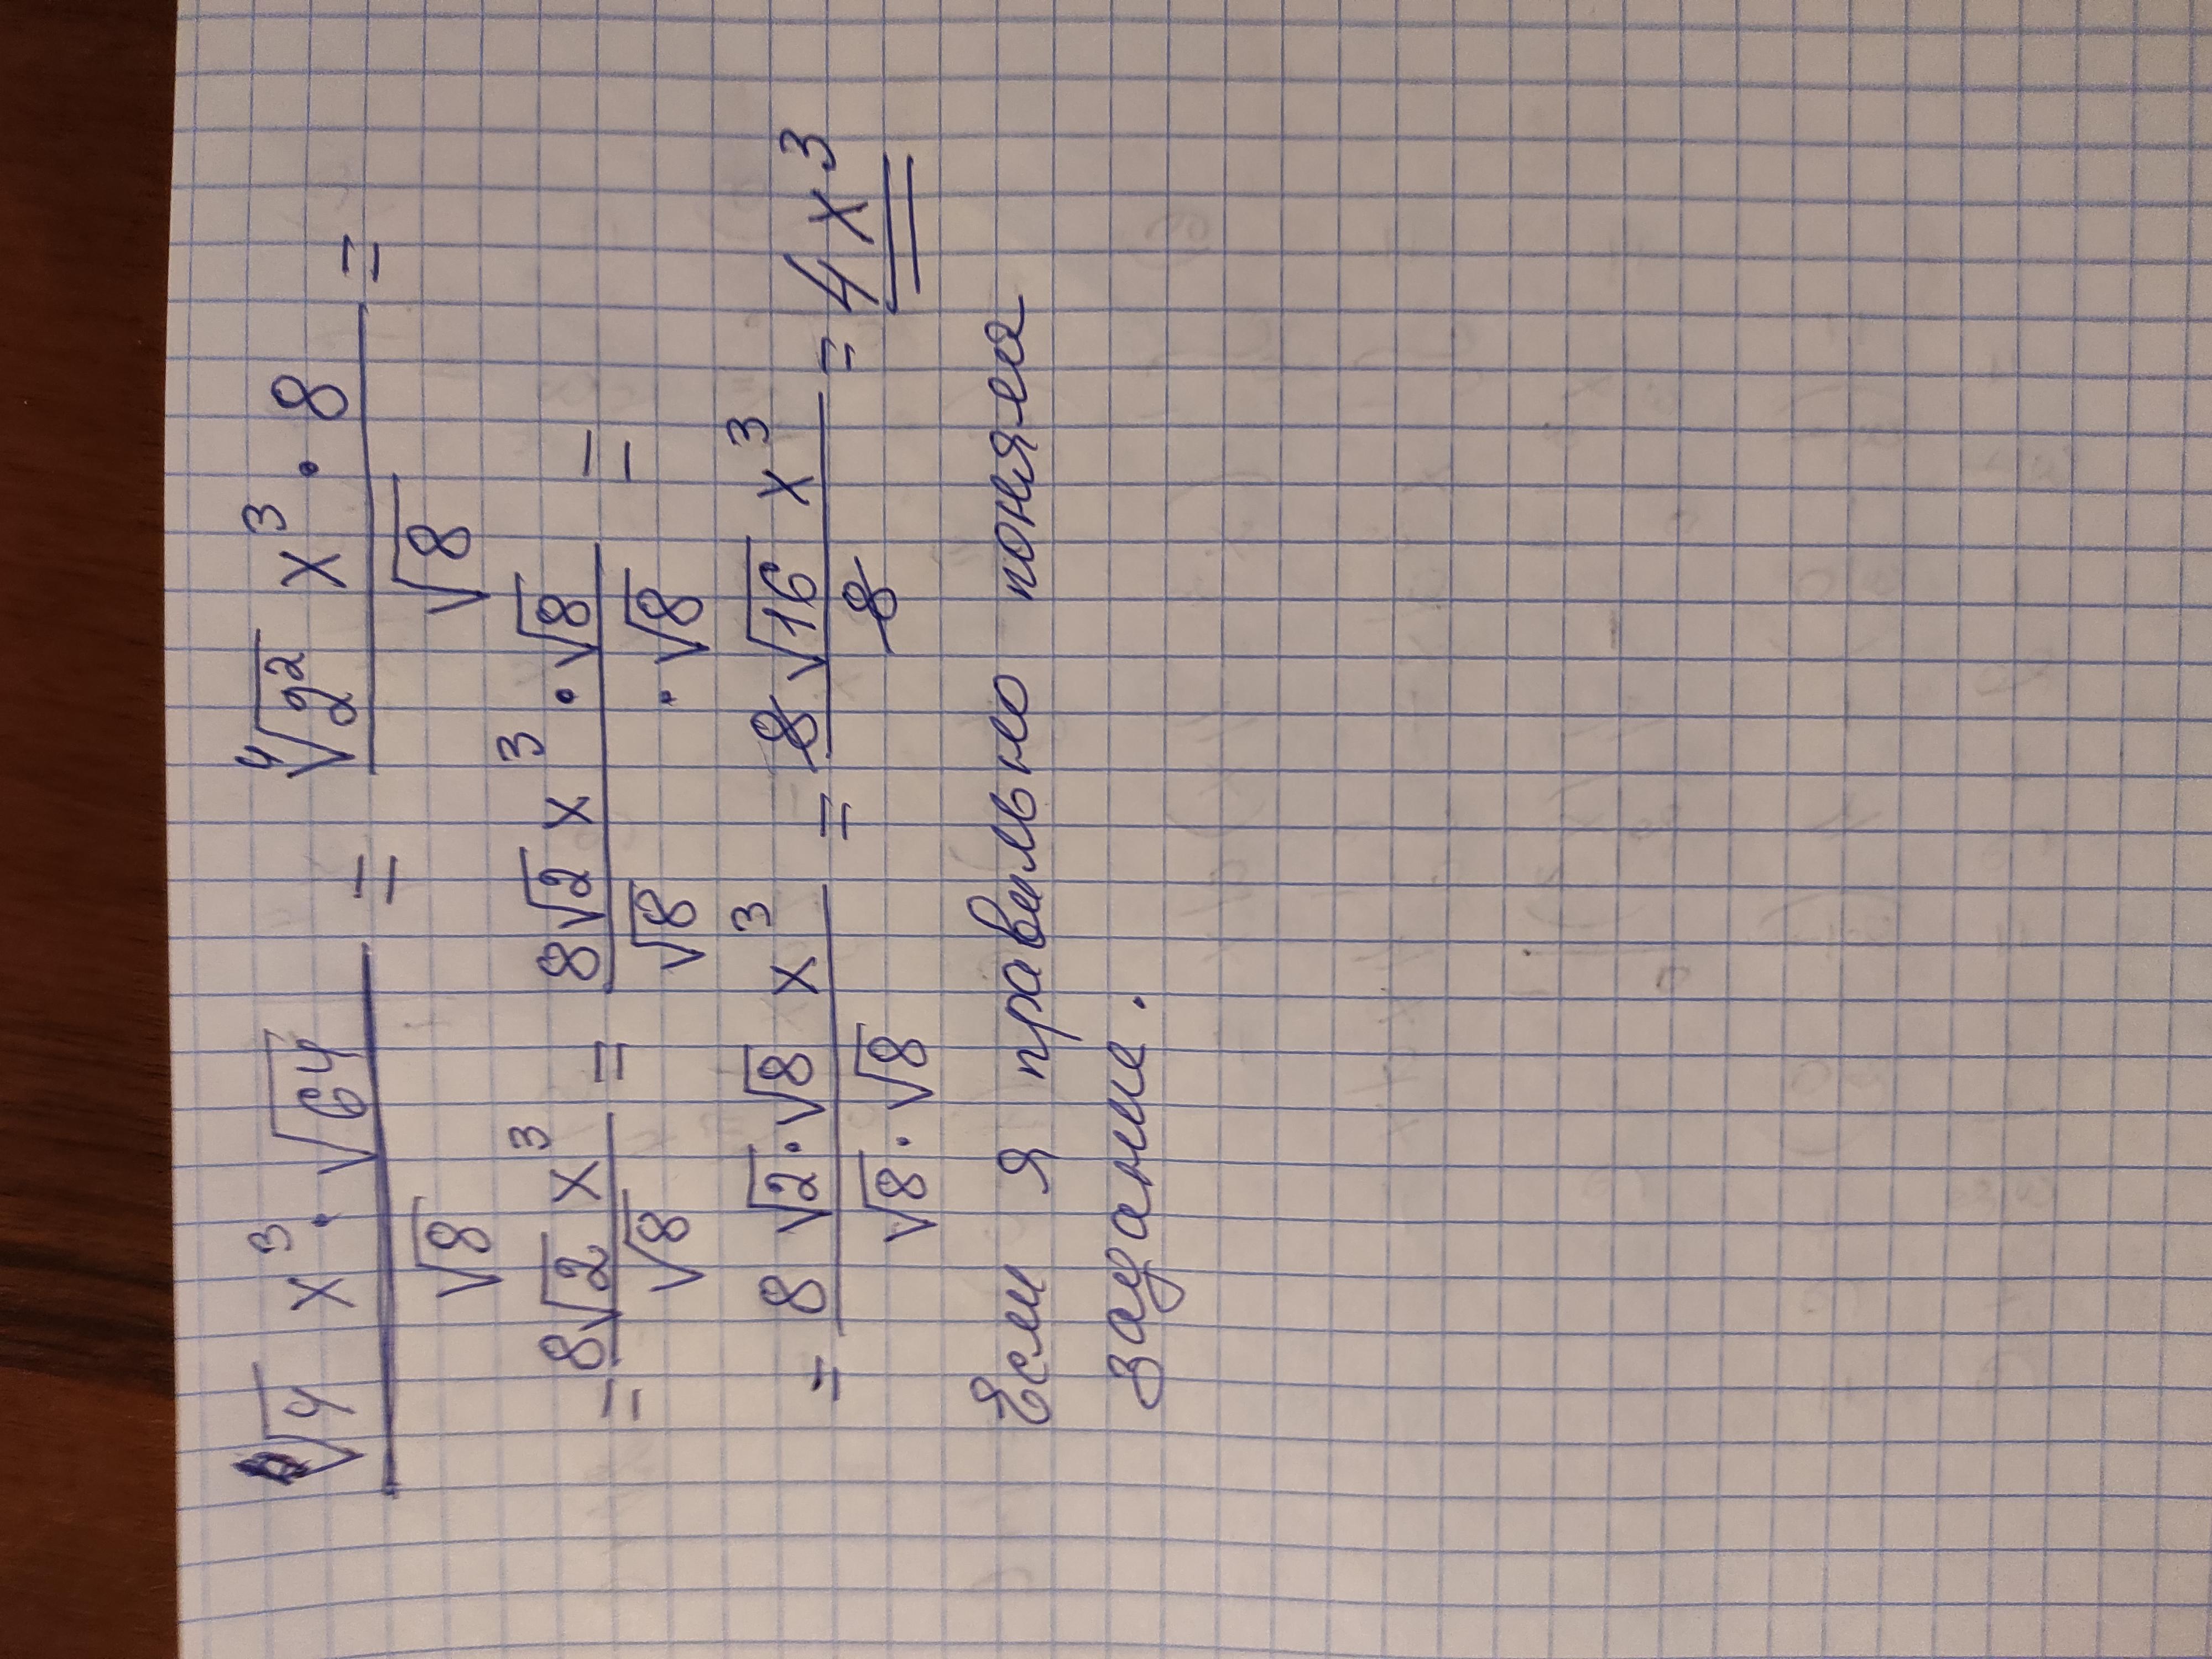 ⁴√4 x³ · √64 / √8 = ⁴√2² x³ · 8 / √8 =
= 8√2 x³ / √8 = 8√2 x³ · √8 / √8 · √8 =
= 8 √2 · √8 x³ / √8 · √8 = 8√16 x³ / 8 = 4x³
Если я правильно поняла
задание.